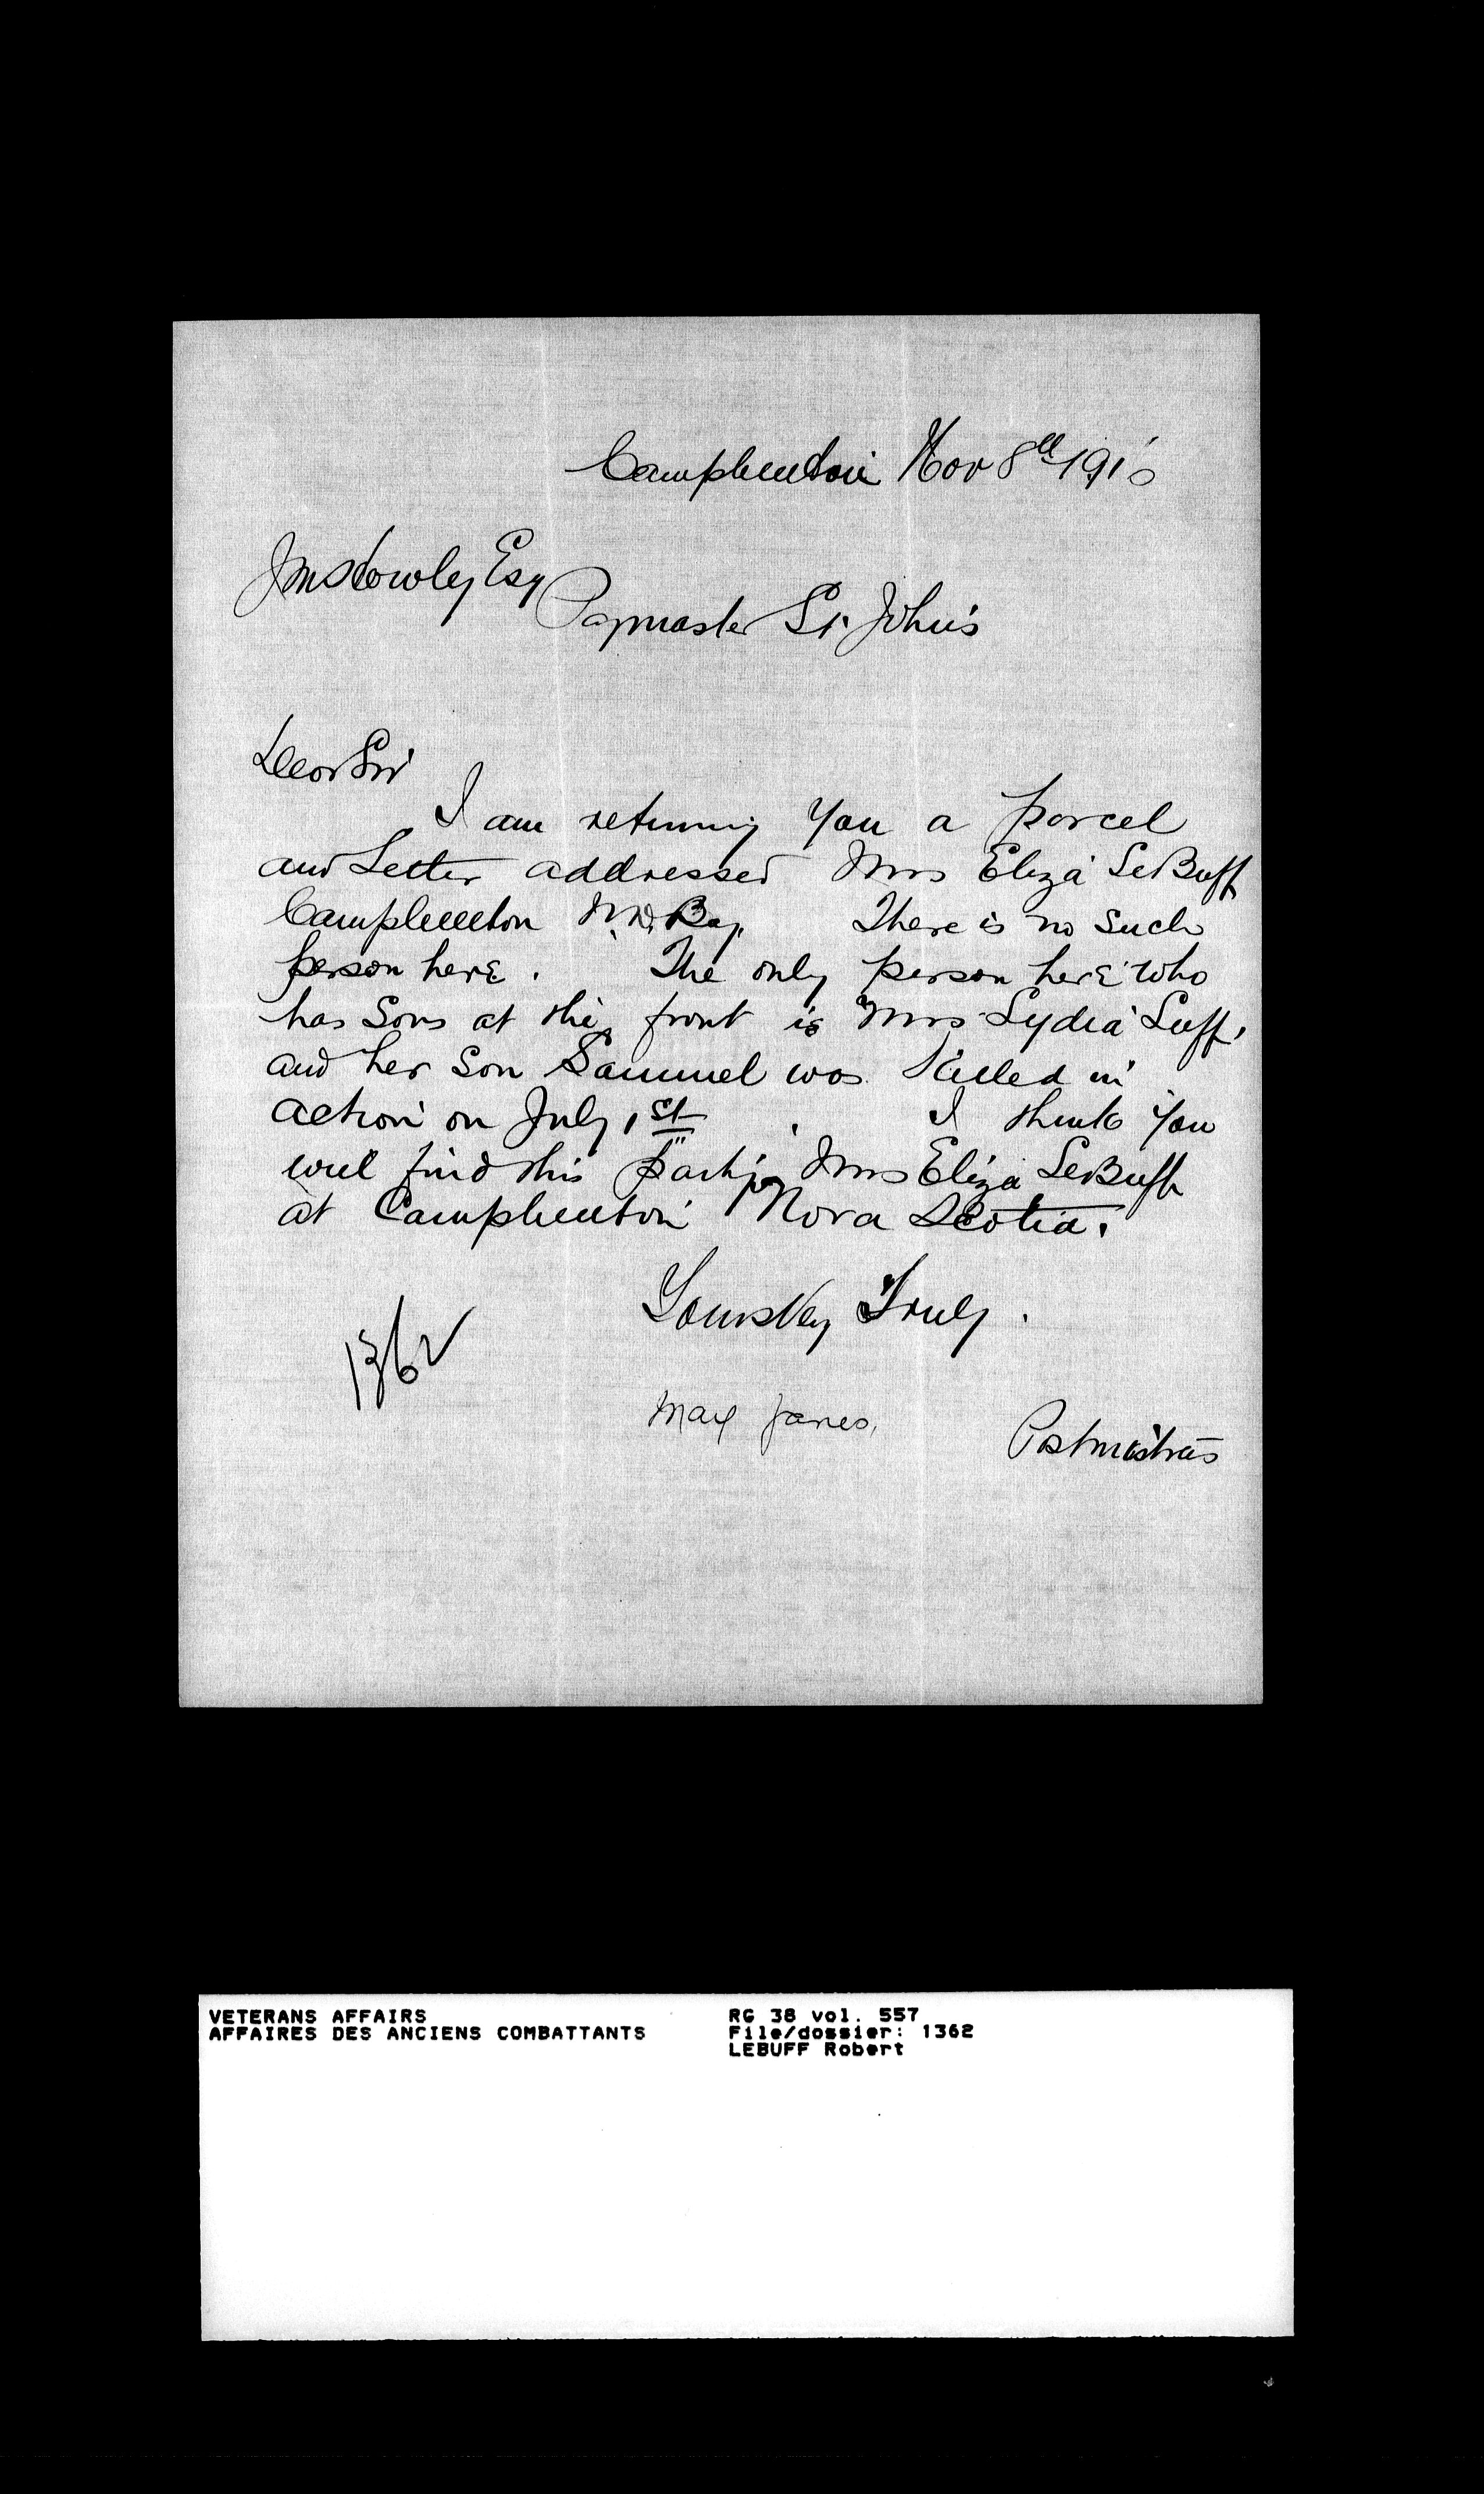 Campbellton Nov 8th 1916
J M Howley Esq
Paymaster St. John's
Dear Sir
I am returning you a parcel
and Letter addressed Mrs Eliza LeBuff
Campbellton N.D. Bay. There is no such
person here. The only person here who
has Sons at the front is Mrs Lydia Luff,
and her Son Samuel was killed in
action on July 1st. I think you
will find this party Mrs Eliza LeBuff
at Campbellton Nova Scotia.
Yours Very Truly.
1362
May Janes,
Postmistress
VETERANS AFFAIRS
AFFAIRES DES ANCIENS COMBATTANTS
RG 38 vol. 557
File/dossier: 1362
LEBUFF Robert